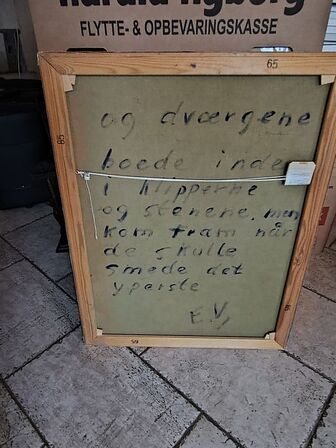 harald nyborg
FLYTTE- & OPBEVARINGSKASSE
65
85
og dværgene
boede inde
i klipperne
og stenene, men
kom fram når
de skulle
smede det
yperste
E.V,
85
65